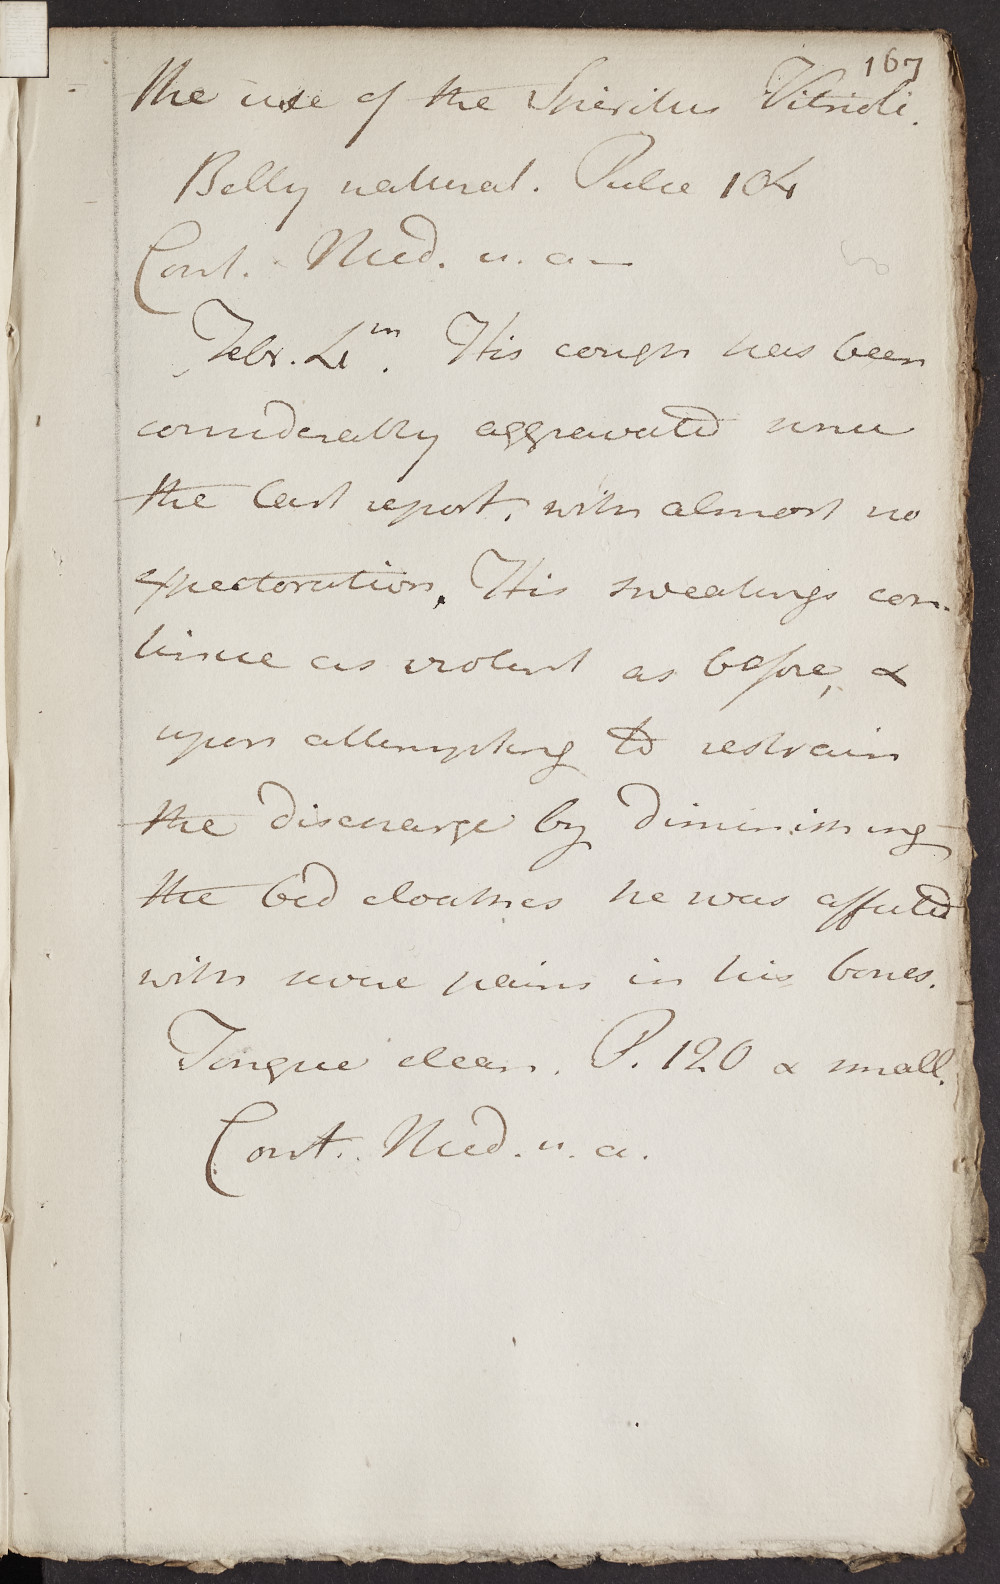 167
the use of the Spiritus Vitrioli.
Belly natural. Pulse 104
Cont. Med. u. a—
Febr. 4th. His cough has been
considerably aggravated since
the last report, with almost no
expectoration. His sweatings con-
tinue as violent as before, &
upon attempting to restrain
the discharge by diminishing
the bed cloathes he was affected
with more pains in his bones.
Tongue clean. P. 120 & small.
Cont. Med. u. a.